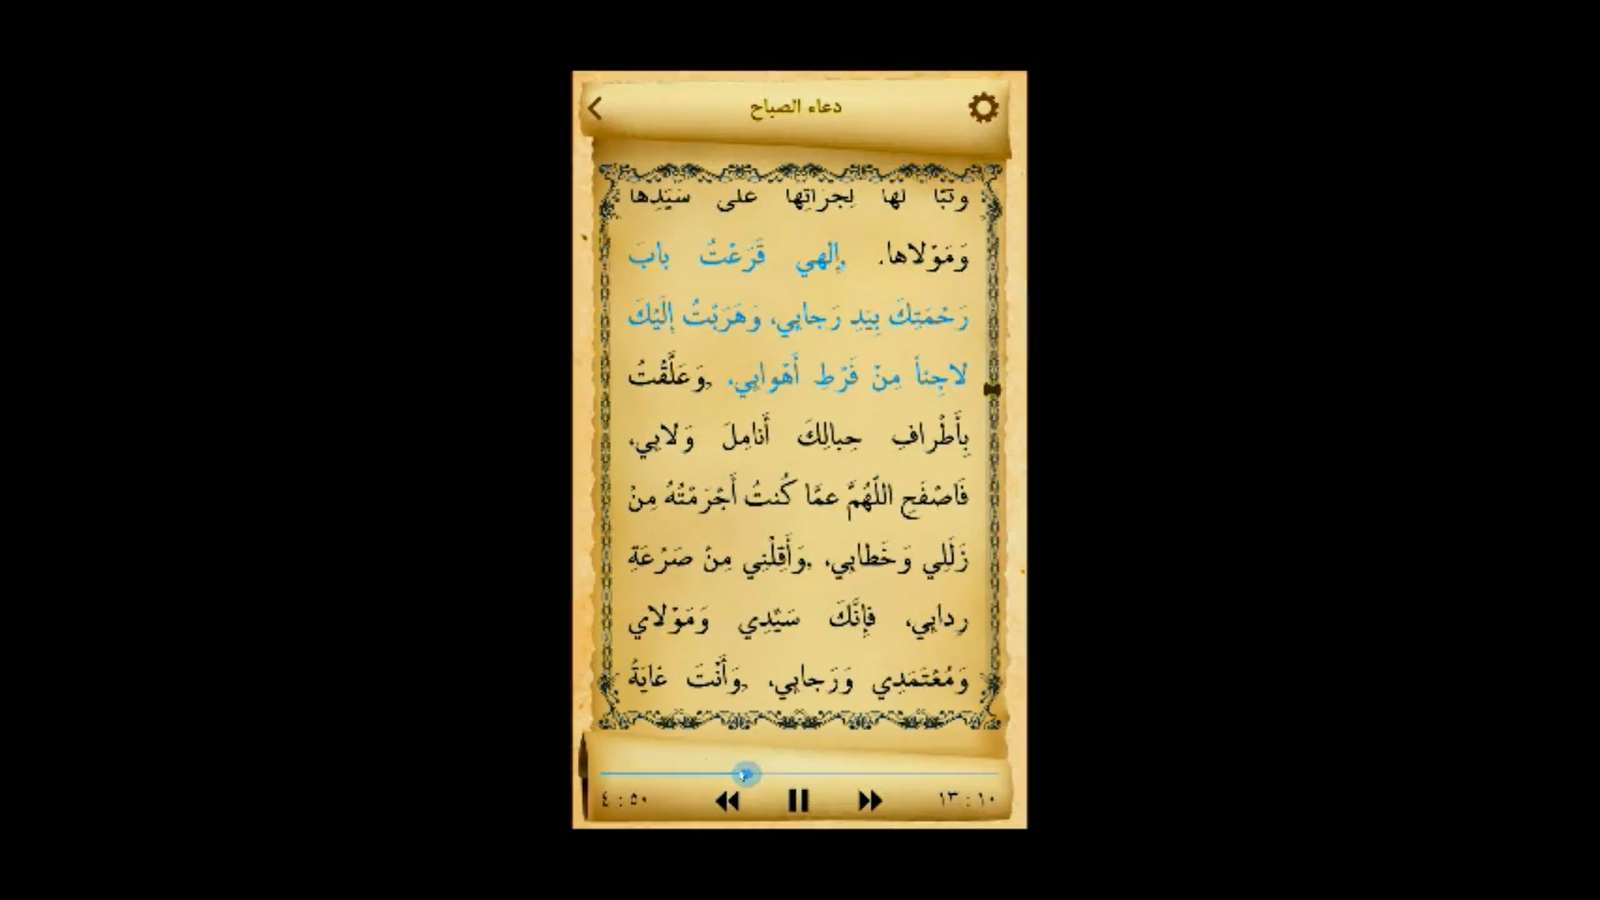 دعاء الصباح
وَتَبّاً لَها لِجُرْأَتِها عَلى سَيِّدِها
وَمَوْلاها. إِلهي قَرَعْتُ بابَ
رَحْمَتِكَ بِيَدِ رَجائِي، وَهَرَبْتُ إِلَيْكَ
لاجِئاً مِنْ فَرْطِ أَهْوائِي، وَعَلَّقْتُ
بِأَطْرافِ حِبالِكَ أَنامِلَ وَلائِي،
فَاصْفَحِ اللّهُمَّ عمَّا كُنتُ أَجْرَمْتُهُ مِنْ
زَلَلِي وَخَطائِي، وَأَقِلْنِي مِنْ صَرْعَةِ
رِدائِي، فإِنَّكَ سَيِّدِي وَمَوْلاي
وَمُعْتَمَدِي وَرَجائِي، وَأَنْتَ غايَةُ
٤ : ٥٠
١٣ : ١٠